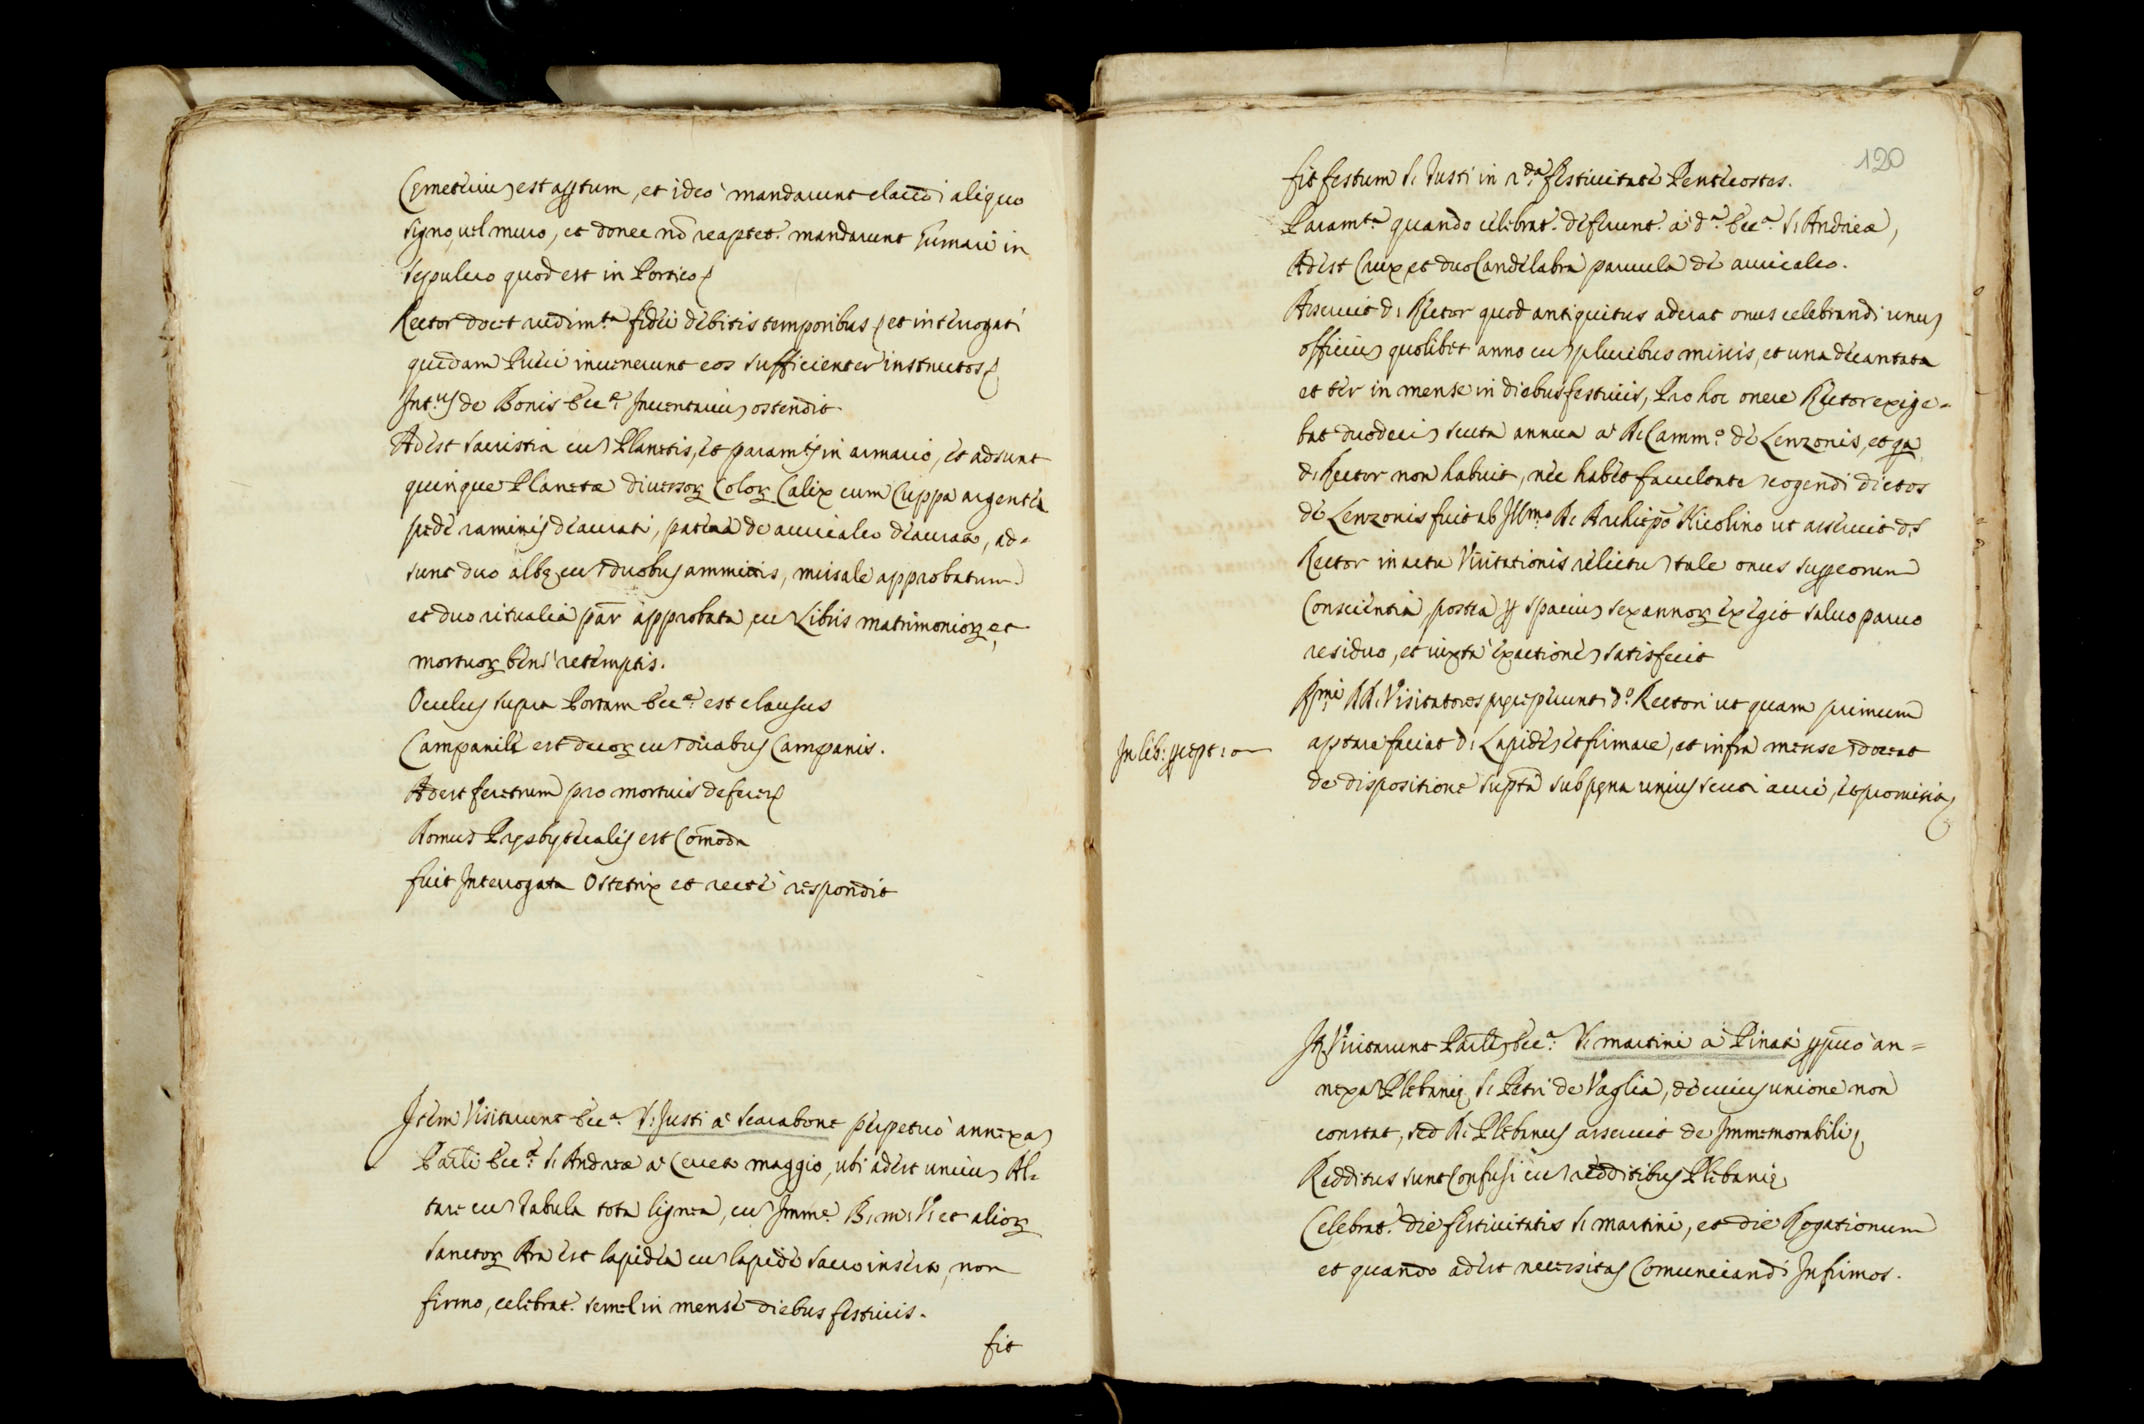 Cęmeteriu) est apertum, et ideo mandarunt claudi aliquo
signo, vel muro, et donec nō reaptet.r mandarunt humari in
sepulcro quod est in Porticu
Rector docet rudim.ta fidei debitis temporibus, et interrogati
quidam Pueri invenerunt eos sufficienter instructos
Int.us de Bonis Ecc.ę Inventariu) ostendit
Adest sacristia cu) Planetis, et param.tis in armario, et adsunt
quinque Planetæ diversor. Color. Calix cum Cuppa argentea
pede raminis deaurati, patena de auricalco deaurato, ad-
sunt duo albę cu) duobus ammictis, missale approbatum
et duo ritualia par. approbata, cu) Libris matrimonior. et
mortuor. bene retemptis.
Oculus supra Portam Ecc.ę est clausus
Campanile est decor. cu) duabus Campanis.
Adest feretrum pro mortuis deferen.
Domus Pręsbyteralis est Comoda
fuit Interrogata Ostetrix et recte respondit
Item Visitarunt Ecc.a S. Justi a Scarabone perpetuo annexa)
Par.li Ecc.ę S. Andreæ a Cereto maggio, ubi adest unicu) Al-
tare cu) tabula tota lignea, cu) Imm.e B. M. V. et alior.
Sanctor. Ara est lapidea cu) lapide sacro inserto, non
firmo, celebrat.r semel in mense diebus festivis.
fit
120
fit festum S. Justi in 2.da festivitate Pentecostes.
Param.ta quando celebrat.r deferunt.r a d.a Ecc.a S. Andreæ,
Adest Crux et duo Candelabra parvula de auricalco.
Asseruit D. Rector quod antiquitus aderat onus celebrandi unu)
officiu) quolibet anno cu) pluribus missis, et una decantata
et ter in mense in diebus festivis, Pro hoc onere Rector exige-
bat duodeci) scuta annua a D. Camm.o de Lenzonis, et qa
D. Rector non habuit, nec habet facultate) cogendi dictos
de Lenzonis fuit ab Ill.mo D. Archiepō Nicolino ut asseruit D.s
Rector in actu Visitationis relictu) tale onus supp eorum
Conscientia, postea p spaciu) sex annor. exegit salvo parvo
residuo, et iuxta exactione) satisfecit
R.mi DD. Visitatores pręceperunt d.o Rectori ut quam primum
In lib: precept. 10
aptare faciat d. Lapide) et firmare, et infra mense) doceat
de dispositione supta sub pęna unius scuti auri, et promisit
It. Visitarunt Par.le) Ecc.a S. Martini a Pinat. ppetuo an-
nexa) Plebanię S. Petri de Vaglia, de cuius unione non
constat, sed D. Plebanus asseruit de Immemorabili
Redditus sunt Confusi cu) redditibus Plebanię
Celebrat.r die festivitatis S. Martini, et die Rogationum
et quando adest necessitas Comunicandi Infirmos.